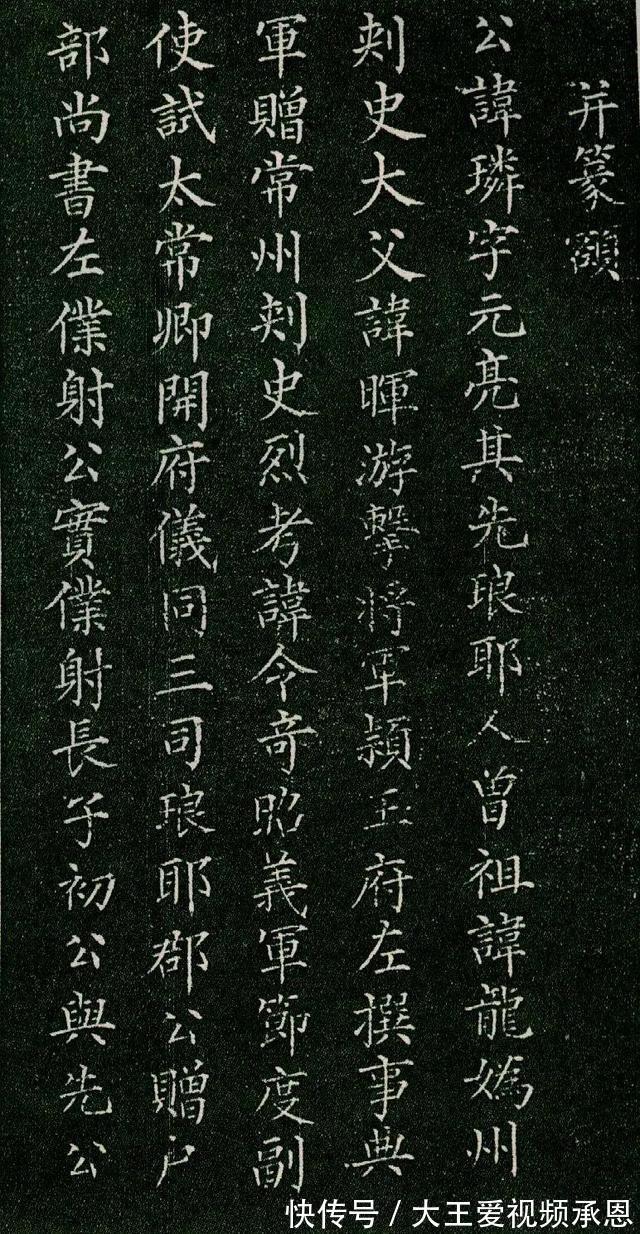 并篆額
公諱璘字元亮其先琅耶人曾祖諱龍媯州
刺史大父諱暉游擊將軍潁王府左撰事典
軍贈常州刺史烈考諱令奇昭義軍節度副
使試太常卿開府儀同三司琅耶郡公贈户
部尚書左僕射公實僕射長子初公與先公
快传号/大王爱视频承恩